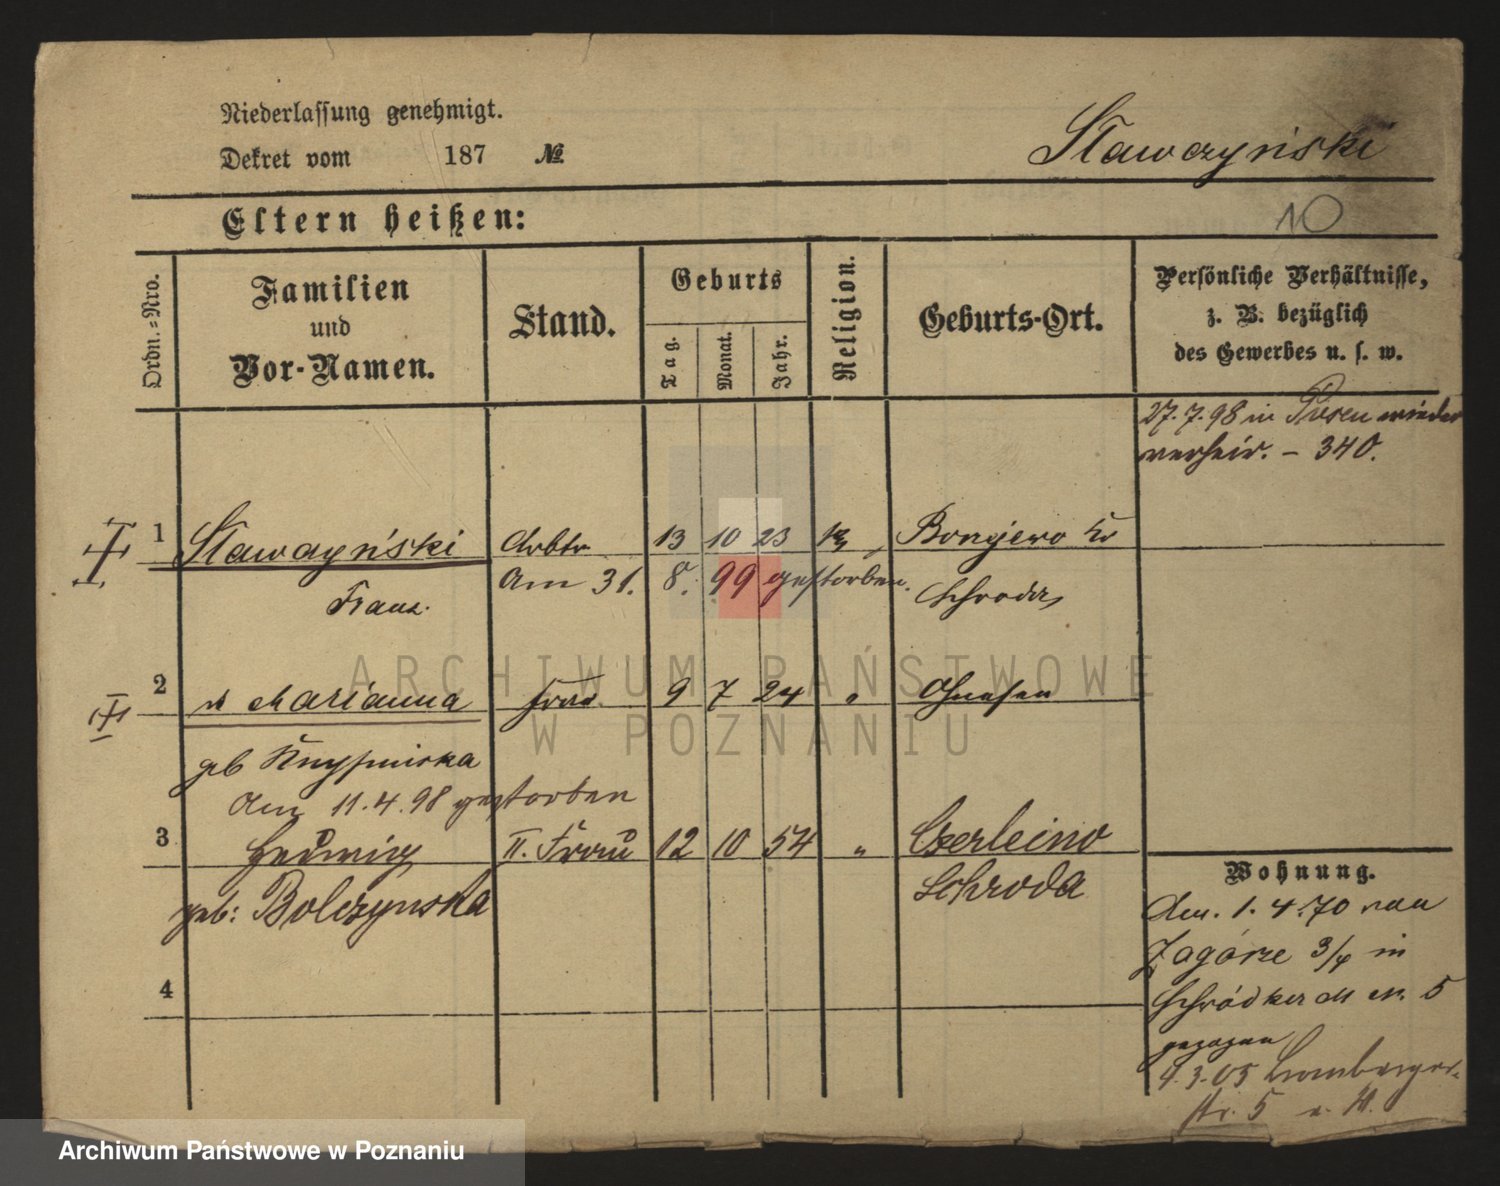 Niederlassung genehmigt.
Dekret vom 187 №
Sławczyński
Eltern heißen:
10
Ordn.=Nro.
Familien
und
Vor-Namen.
Stand.
Geburts
Tag.
Monat.
Jahr.
Religion.
Geburts-Ort.
Persönliche Verhältnisse,
z. B. bezüglich
des Gewerbes u. s. w.
27.7.98 in Posen wieder
verheir. – 340.
1 Sławczyński Arbtr 13 10 23
Franz.
Am 31. 8. 99 gestorben.
Schroda
2 Marianna Frau 9 7 24 " Gnesen
geb
Am 11.4.98 gestorben
3 Hedwig II. Frau 12 10 54 " Czerleino
geb: Bolczynska Schroda
4
Wohnung.
Am. 1. 4. 70 von
Zagórze 3/4 in
Schrödker M No. 5
gezogen
4.3.05 Bromberger-
str. 5
ARCHIWUM PAŃSTWOWE
W POZNANIU
Archiwum Państwowe w Poznaniu